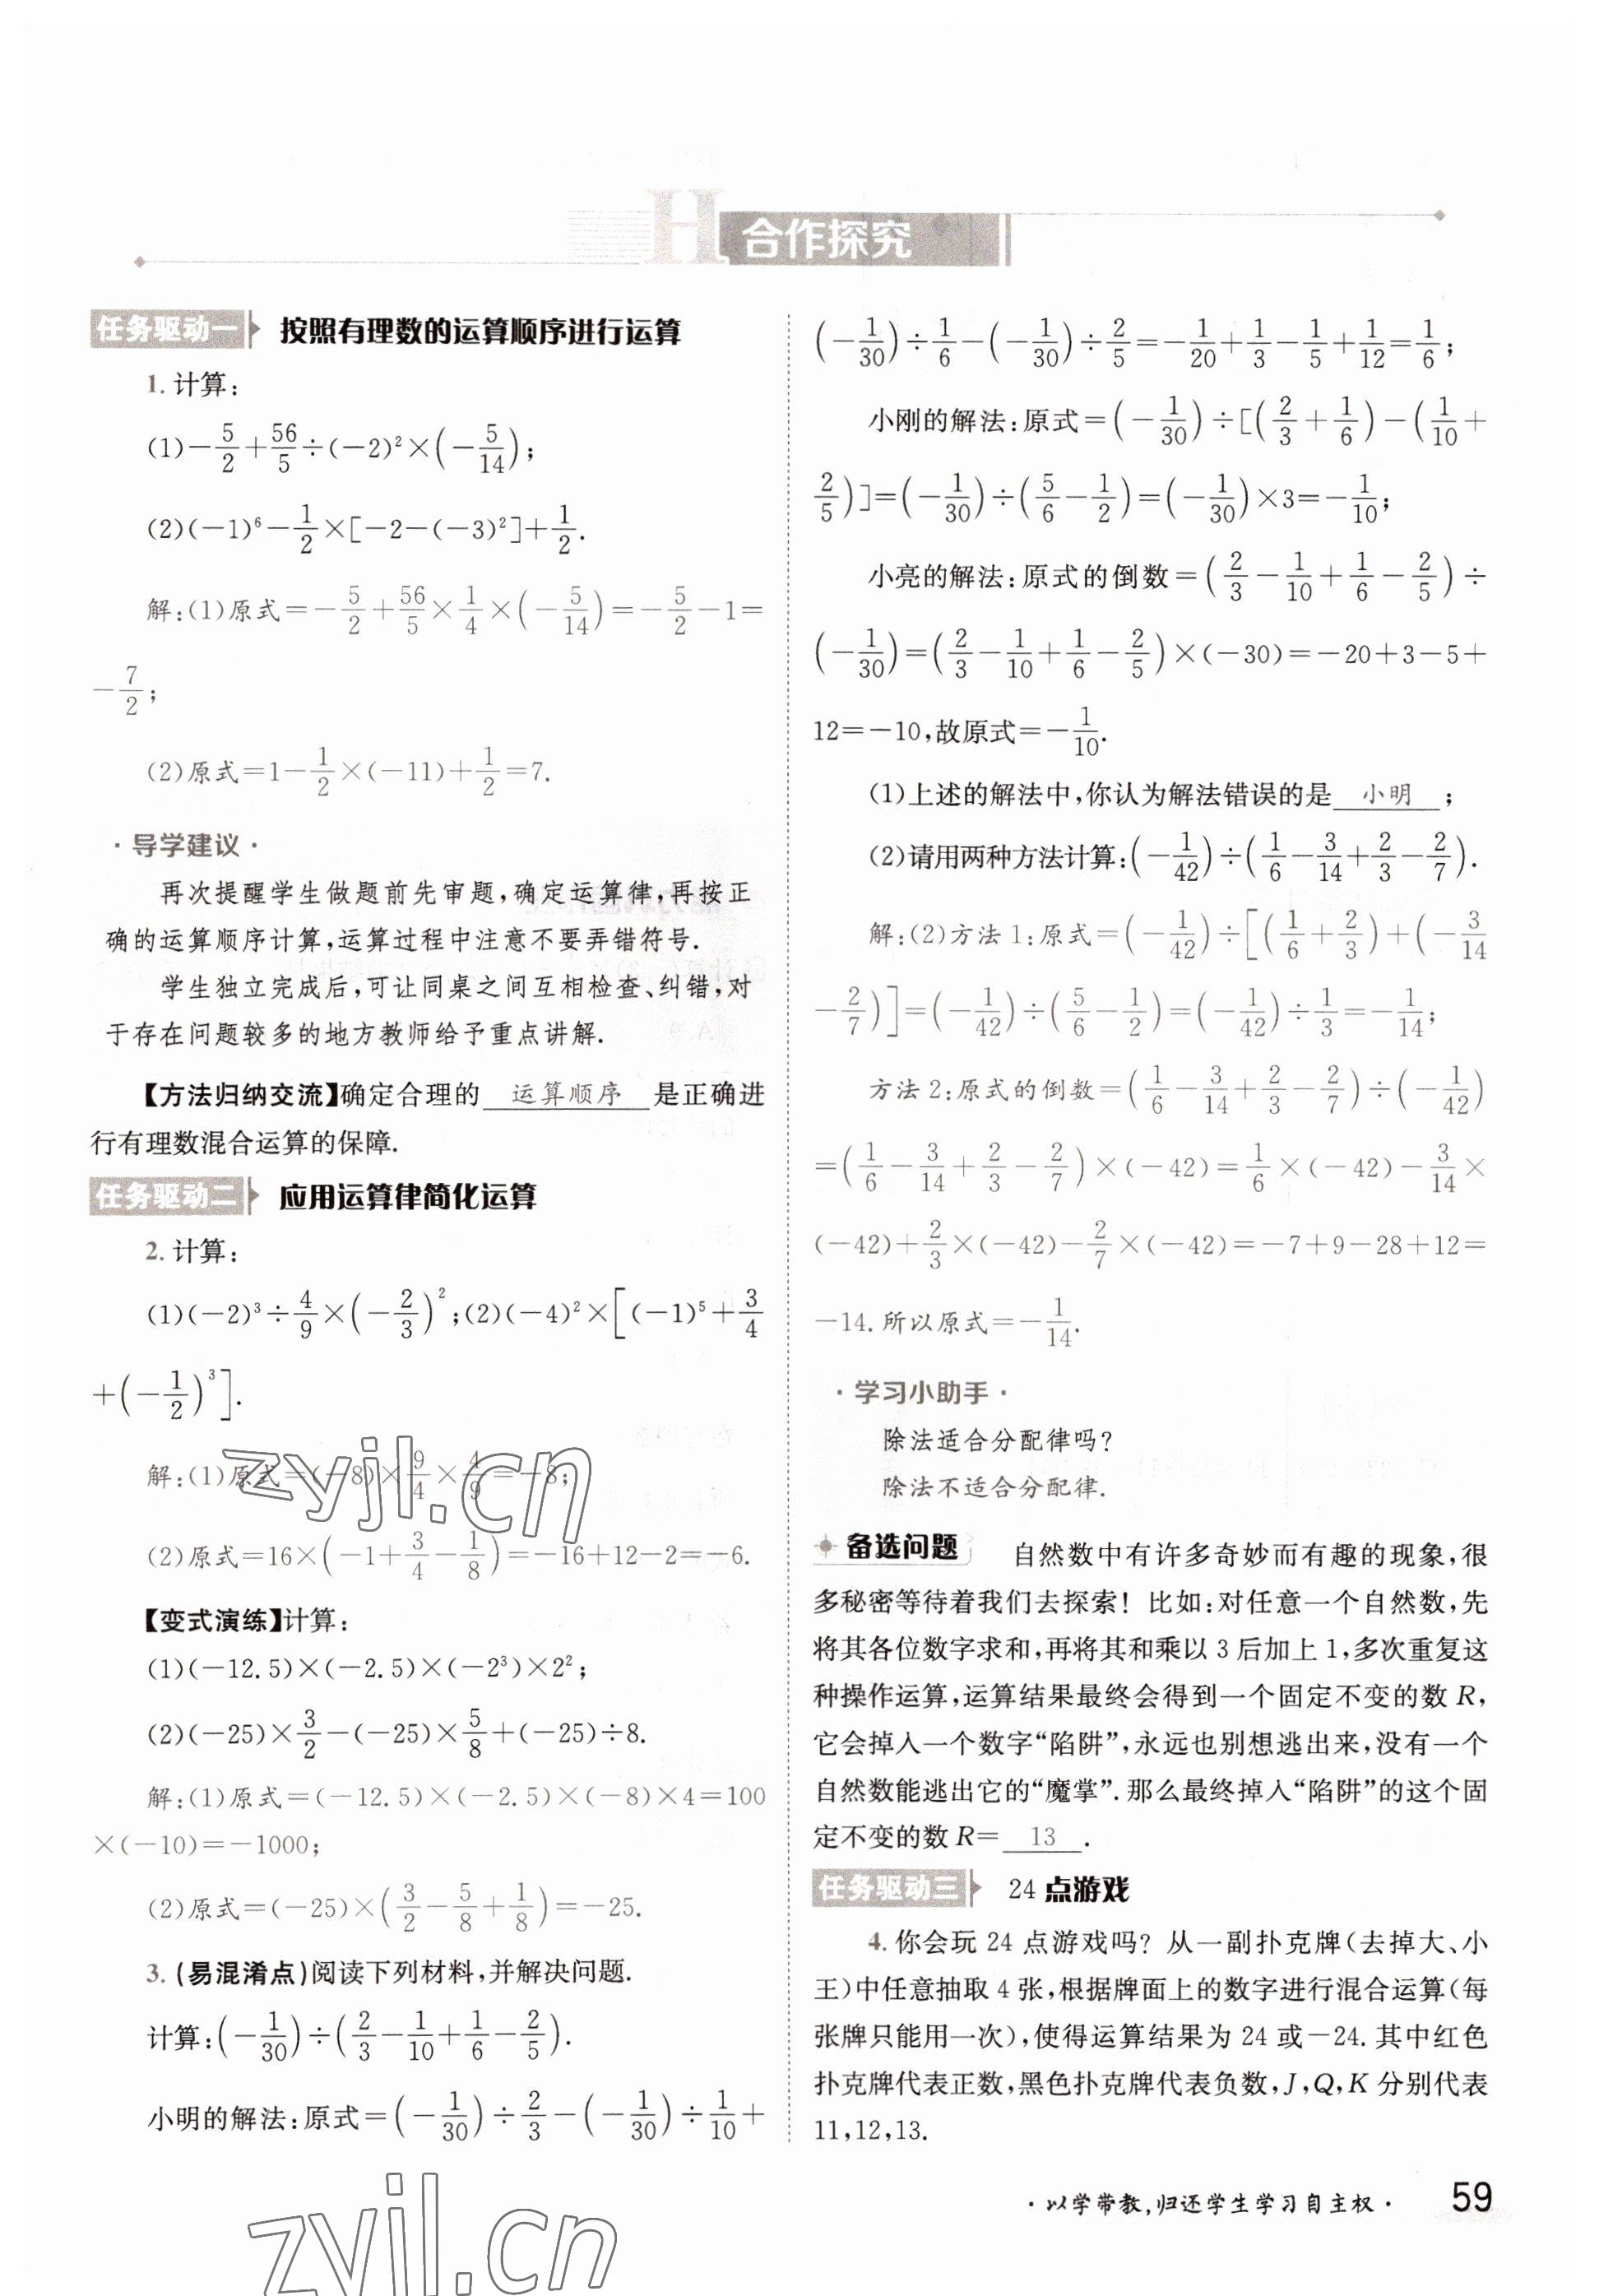 H 合作探究
任务驱动一 按照有理数的运算顺序进行运算
1. 计算:
(1)-5/2+56/5÷(-2)²×(-5/14);
(2)(-1)⁶-1/2×[-2-(-3)²]+1/2.
解:(1)原式=-5/2+56/5×1/4×(-5/14)=-5/2-1=
-7/2;
(2)原式=1-1/2×(-11)+1/2=7.
·导学建议·
再次提醒学生做题前先审题,确定运算律,再按正
确的运算顺序计算,运算过程中注意不要弄错符号.
学生独立完成后,可让同桌之间互相检查、纠错,对
于存在问题较多的地方教师给予重点讲解.
【方法归纳交流】确定合理的 运算顺序 是正确进
行有理数混合运算的保障.
任务驱动二 应用运算律简化运算
2. 计算:
(1)(-2)³÷4/9×(-2/3)²;(2)(-4)²×[(-1)⁵+3/4
+(-1/2)³].
解:(1)原式=(-8)×9/4×4/9=-8;
(2)原式=16×(-1+3/4-1/8)=-16+12-2=-6.
【变式演练】计算:
(1)(-12.5)×(-2.5)×(-2³)×2²;
(2)(-25)×3/2-(-25)×5/8+(-25)÷8.
解:(1)原式=(-12.5)×(-2.5)×(-8)×4=100
×(-10)=-1000;
(2)原式=(-25)×(3/2-5/8+1/8)=-25.
3. (易混淆点)阅读下列材料,并解决问题.
计算:(-1/30)÷(2/3-1/10+1/6-2/5).
小明的解法:原式=(-1/30)÷2/3-(-1/30)÷1/10+
(-1/30)÷1/6-(-1/30)÷2/5=-1/20+1/3-1/5+1/12=1/6;
小刚的解法:原式=(-1/30)÷[(2/3+1/6)-(1/10+
2/5)]=(-1/30)÷(5/6-1/2)=(-1/30)×3=-1/10;
小亮的解法:原式的倒数=(2/3-1/10+1/6-2/5)÷
(-1/30)=(2/3-1/10+1/6-2/5)×(-30)=-20+3-5+
12=-10,故原式=-1/10.
(1)上述的解法中,你认为解法错误的是 小明 ;
(2)请用两种方法计算:(-1/42)÷(1/6-3/14+2/3-2/7).
解:(2)方法1:原式=(-1/42)÷[(1/6+2/3)+(-3/14
-2/7)]=(-1/42)÷(5/6-1/2)=(-1/42)÷1/3=-1/14;
方法2:原式的倒数=(1/6-3/14+2/3-2/7)÷(-1/42)
=(1/6-3/14+2/3-2/7)×(-42)=1/6×(-42)-3/14×
(-42)+2/3×(-42)-2/7×(-42)=-7+9-28+12=
-14.所以原式=-1/14.
·学习小助手·
除法适合分配律吗?
除法不适合分配律.
备选问题 自然数中有许多奇妙而有趣的现象,很
多秘密等待着我们去探索! 比如:对任意一个自然数,先
将其各位数字求和,再将其和乘以3后加上1,多次重复这
种操作运算,运算结果最终会得到一个固定不变的数R,
它会掉入一个数字“陷阱”,永远也别想逃出来,没有一个
自然数能逃出它的“魔掌”.那么最终掉入“陷阱”的这个固
定不变的数R= 13 .
任务驱动三 24点游戏
4. 你会玩24点游戏吗? 从一副扑克牌(去掉大、小
王)中任意抽取4张,根据牌面上的数字进行混合运算(每
张牌只能用一次),使得运算结果为24或-24.其中红色
扑克牌代表正数,黑色扑克牌代表负数,J,Q,K分别代表
11,12,13.
·以学带教,归还学生学习自主权· 59
zyjl.cn
zyjl.cn